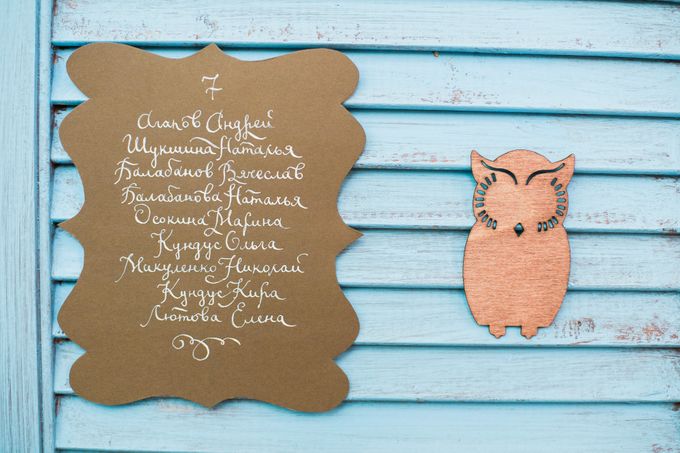 7
Агапов Андрей
Шукшина Наталья
Балабанов Вячеслав
Балабанова Наталья
Осокина Марина
Кундус Ольга
Микуленко Николай
Кундус Кира
Лютова Елена